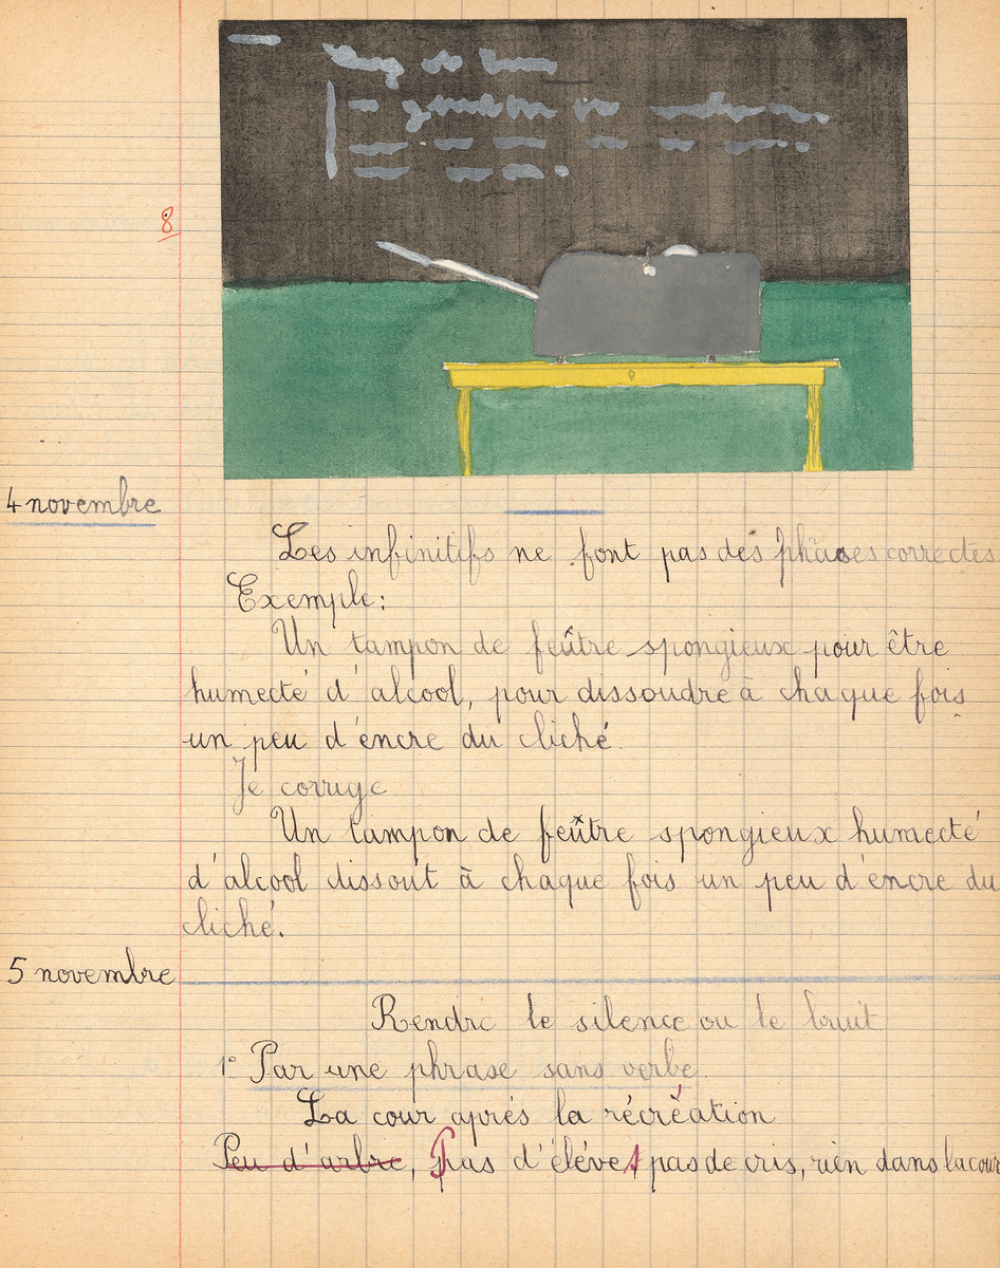 8
4 novembre
Les infinitifs ne font pas des phrases correctes
Exemple:
Un tampon de feûtre spongieux pour être
humecté d'alcool, pour dissoudre à chaque fois
un peu d'encre du cliché.
Je corrige
Un tampon de feûtre spongieux humecté
d'alcool dissout à chaque fois un peu d'encre du
cliché.
5 novembre
Rendre le silence ou le bruit
1° Par une phrase sans verbe.
La cour aprés la récréation
Peu d'arbre, Pas d'éléves pas de cris, rien dans la cour